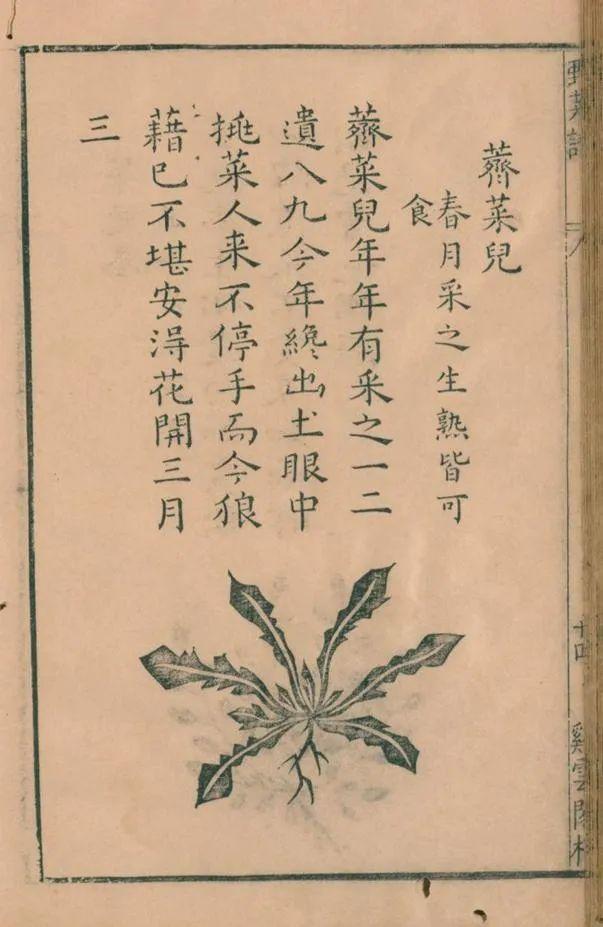 薺菜兒
春月采之生熟皆可
食
薺菜兒年年有采之一二
遺八九今年纔出土眼中
挑菜人来不停手而今狼
藉已不堪安淂花開三月
三